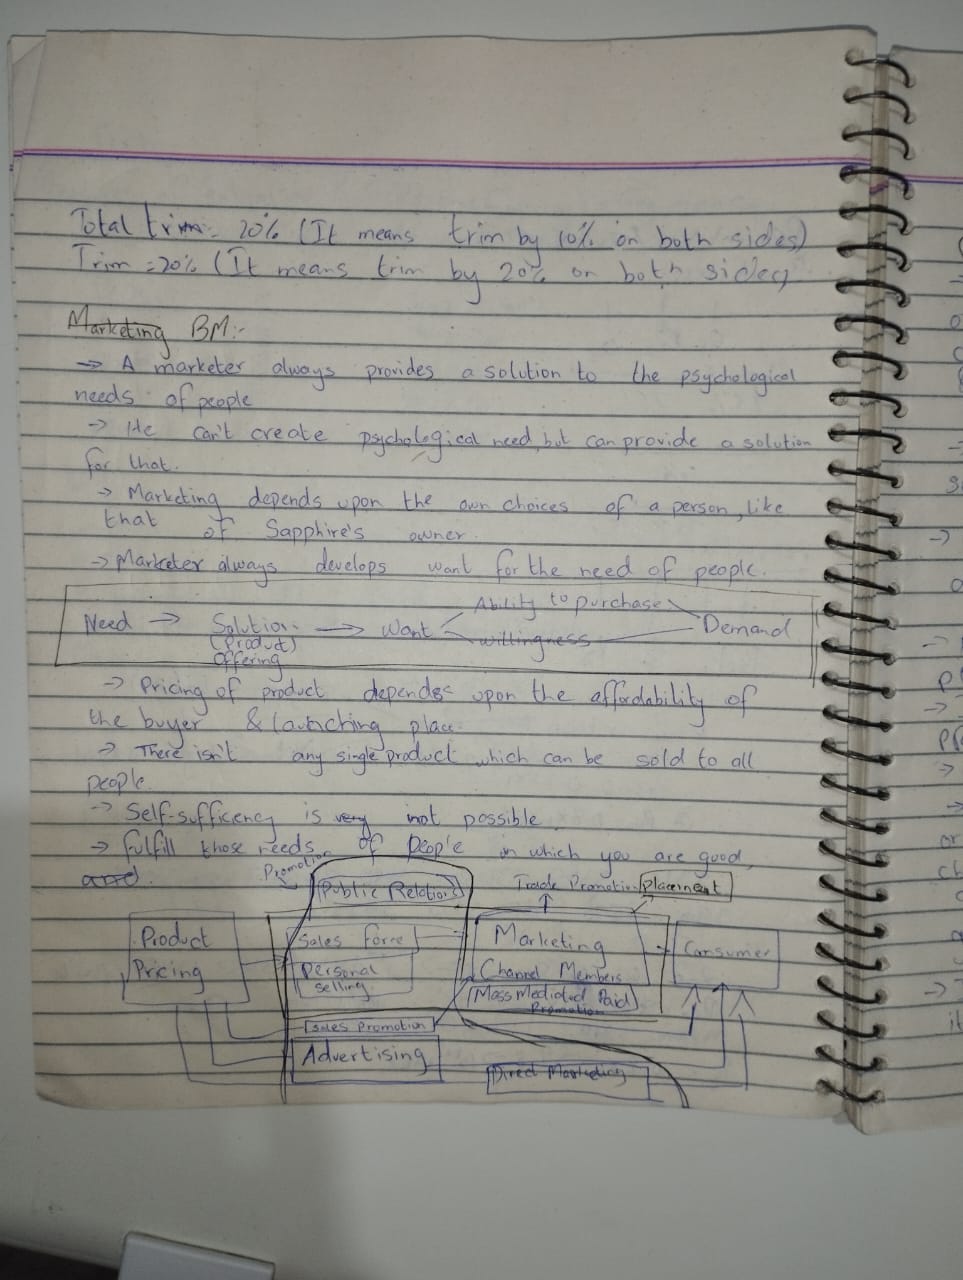 Total trim = 20% (It means trim by 10% on both sides)
Trim = 20% (It means trim by 20% on both sides)
Marketing BM:-
→ A marketer always provides a solution to the psychological
needs of people
→ He can't create psychological need, but can provide a solution
for that.
→ Marketing depends upon the own choices of a person, like
that of Sapphire's owner.
→ Marketer always develops want for the need of people.
Ability to purchase
Need → Solution → Want Demand
(Product) willingness
offering
→ Pricing of product depends upon the affordability of
the buyer & launching place.
→ There isn't any single product which can be sold to all
people.
→ Self-sufficency is very not possible.
→ fulfill those needs of people in which you are good
and.
Promotion
Public Relations Trade Promotion Placement
Product Sales Force Marketing Consumer
Pricing Personal Channel Members
Selling Mass Mediated Paid
Promotion
Sales Promotion
Advertising
Direct Marketing